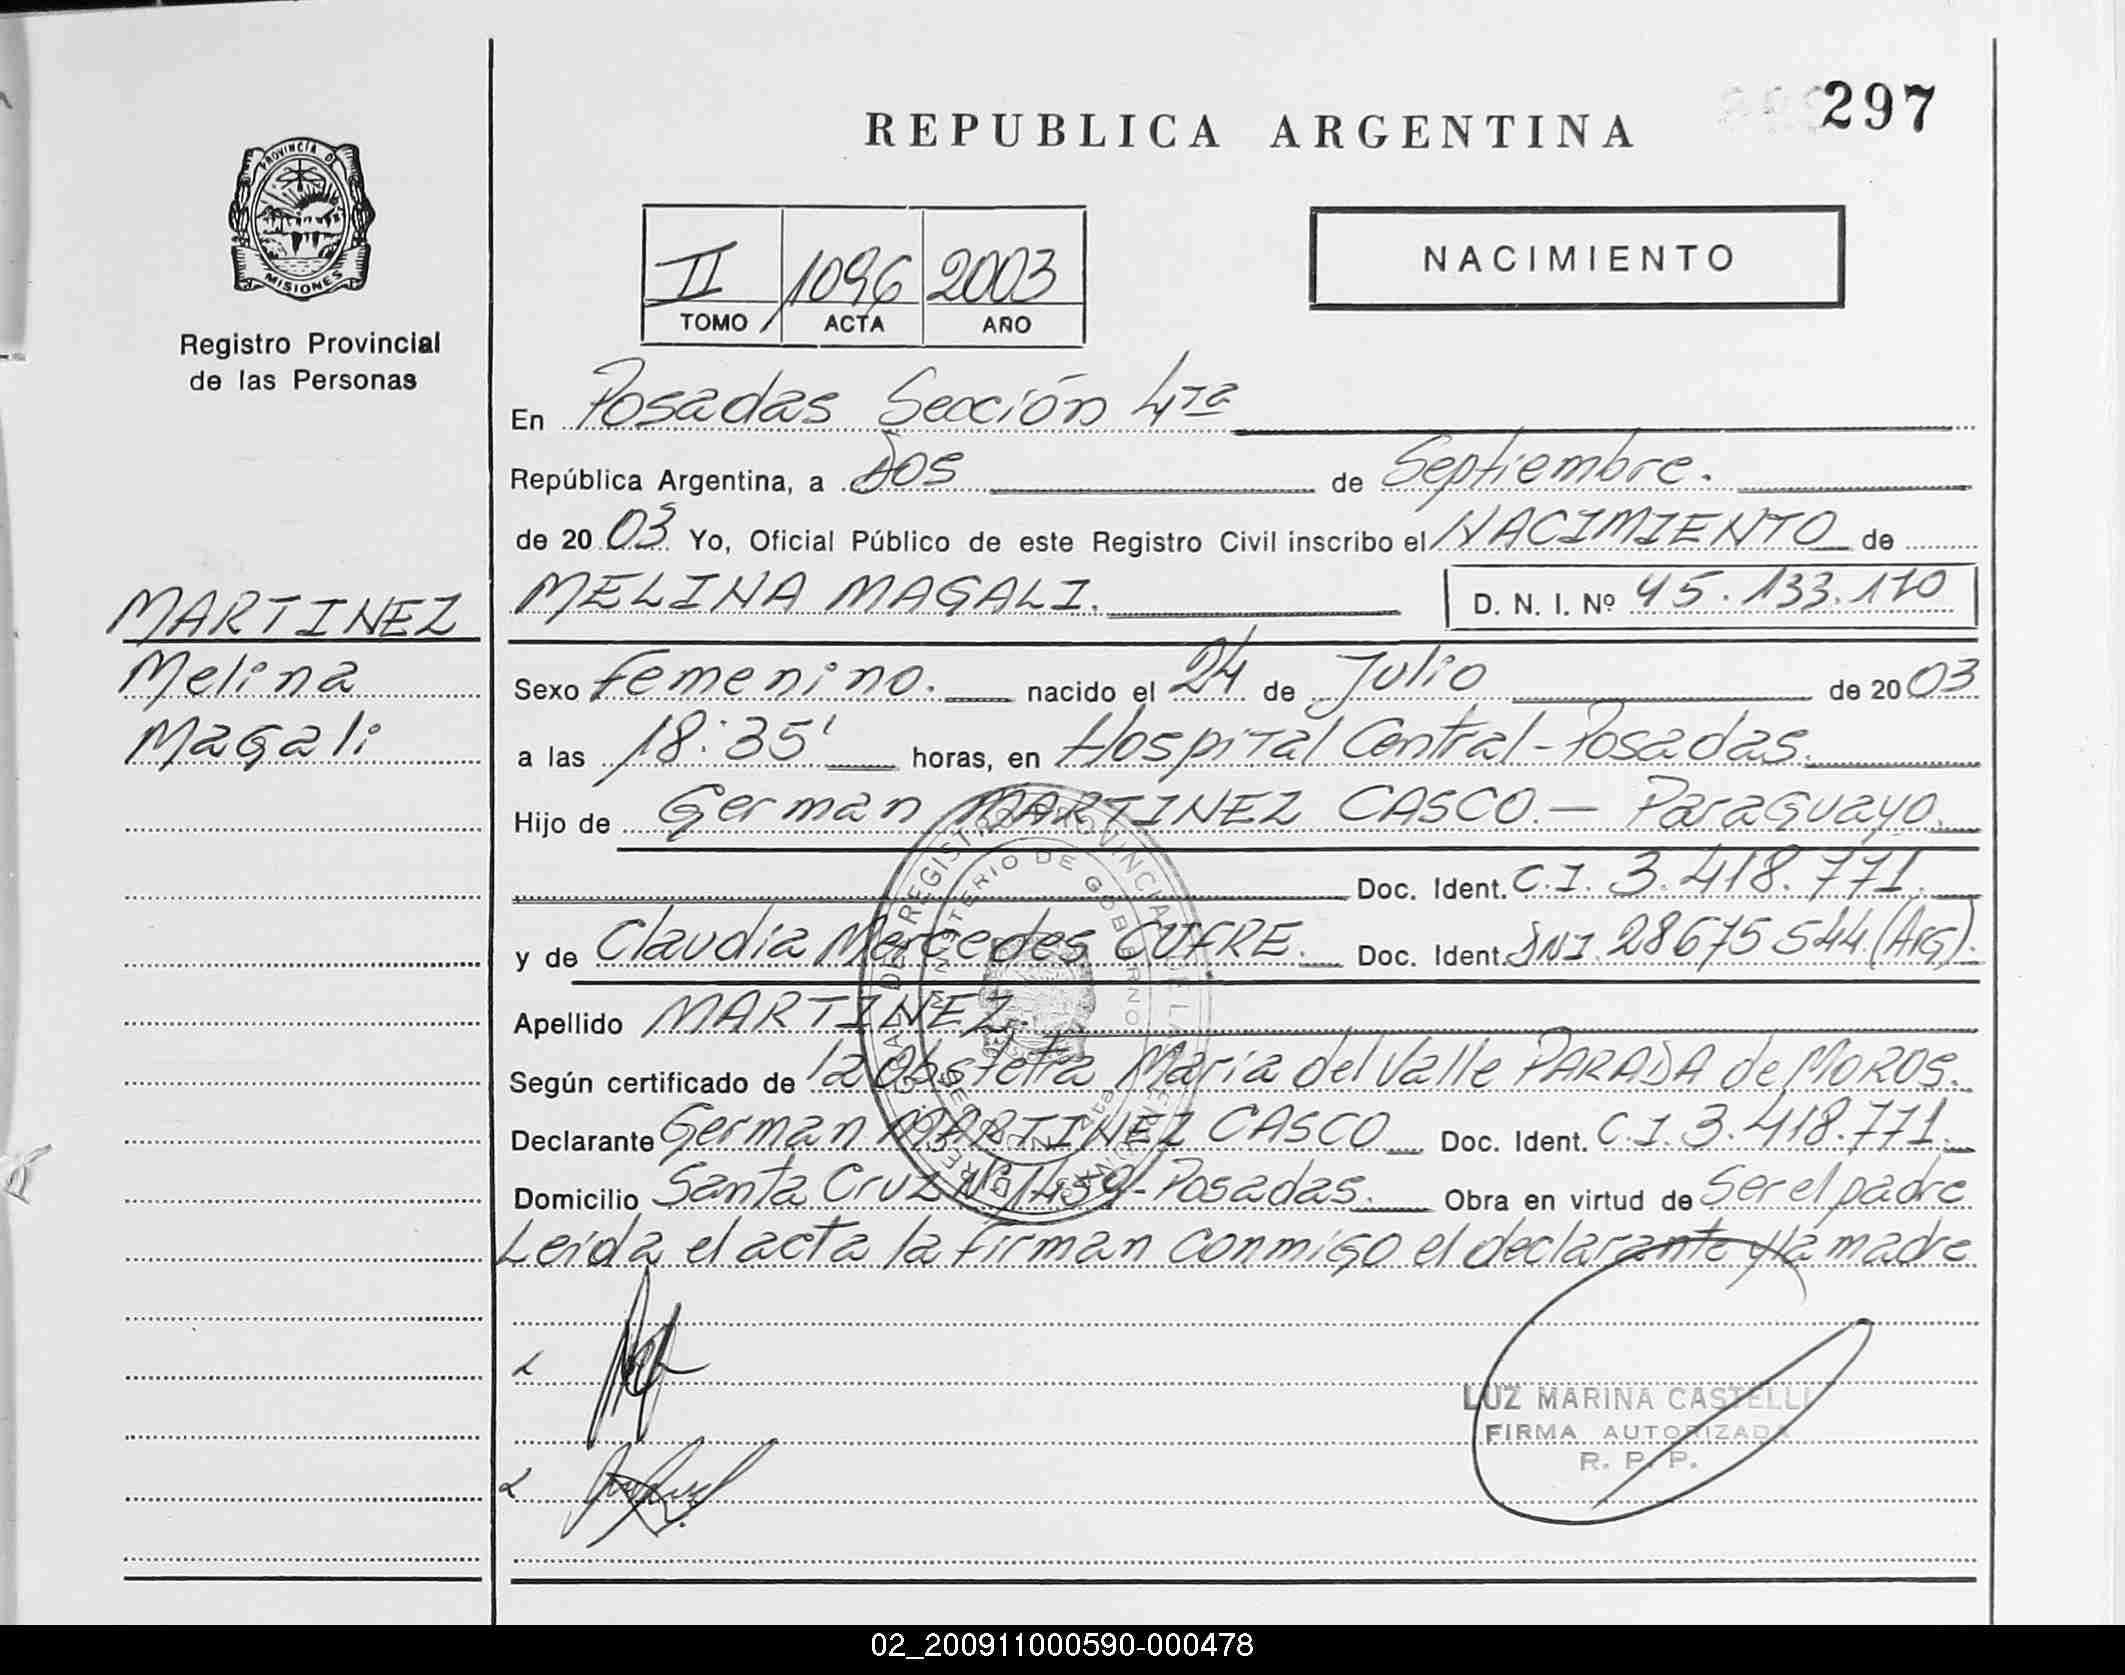 REPUBLICA ARGENTINA
297
PROVINCIA DE
MISIONES
Registro Provincial
de las Personas
II 1096 2003
TOMO ACTA AÑO
NACIMIENTO
En Posadas Sección 4ta
República Argentina, a Dos de Septiembre.
de 20 03 Yo, Oficial Público de este Registro Civil inscribo el NACIMIENTO de
MARTINEZ
Melina
Magali
MELINA MAGALI. D. N. I. Nº 45.133.170
Sexo femenino. nacido el 24 de Julio de 20 03
a las 18:35' horas, en Hospital Central - Posadas.
Hijo de German MARTINEZ CASCO. — Paraguayo.
Doc. Ident. C.I. 3.418.771.
y de Claudia Mercedes CUFRE. Doc. Ident. DNI. 28675544 (Arg).
Apellido MARTINEZ.
Según certificado de la Obstetra Maria del Valle PARADA de MOROS.
Declarante German MARTINEZ CASCO Doc. Ident. C.I. 3.418.771.
Domicilio Santa Cruz Nº 1459 - Posadas. Obra en virtud de Ser el padre
Leida el acta la firman conmigo el declarante y la madre
LUZ MARINA CASTELLI
FIRMA AUTORIZADA
R. P. P.
02_200911000590-000478